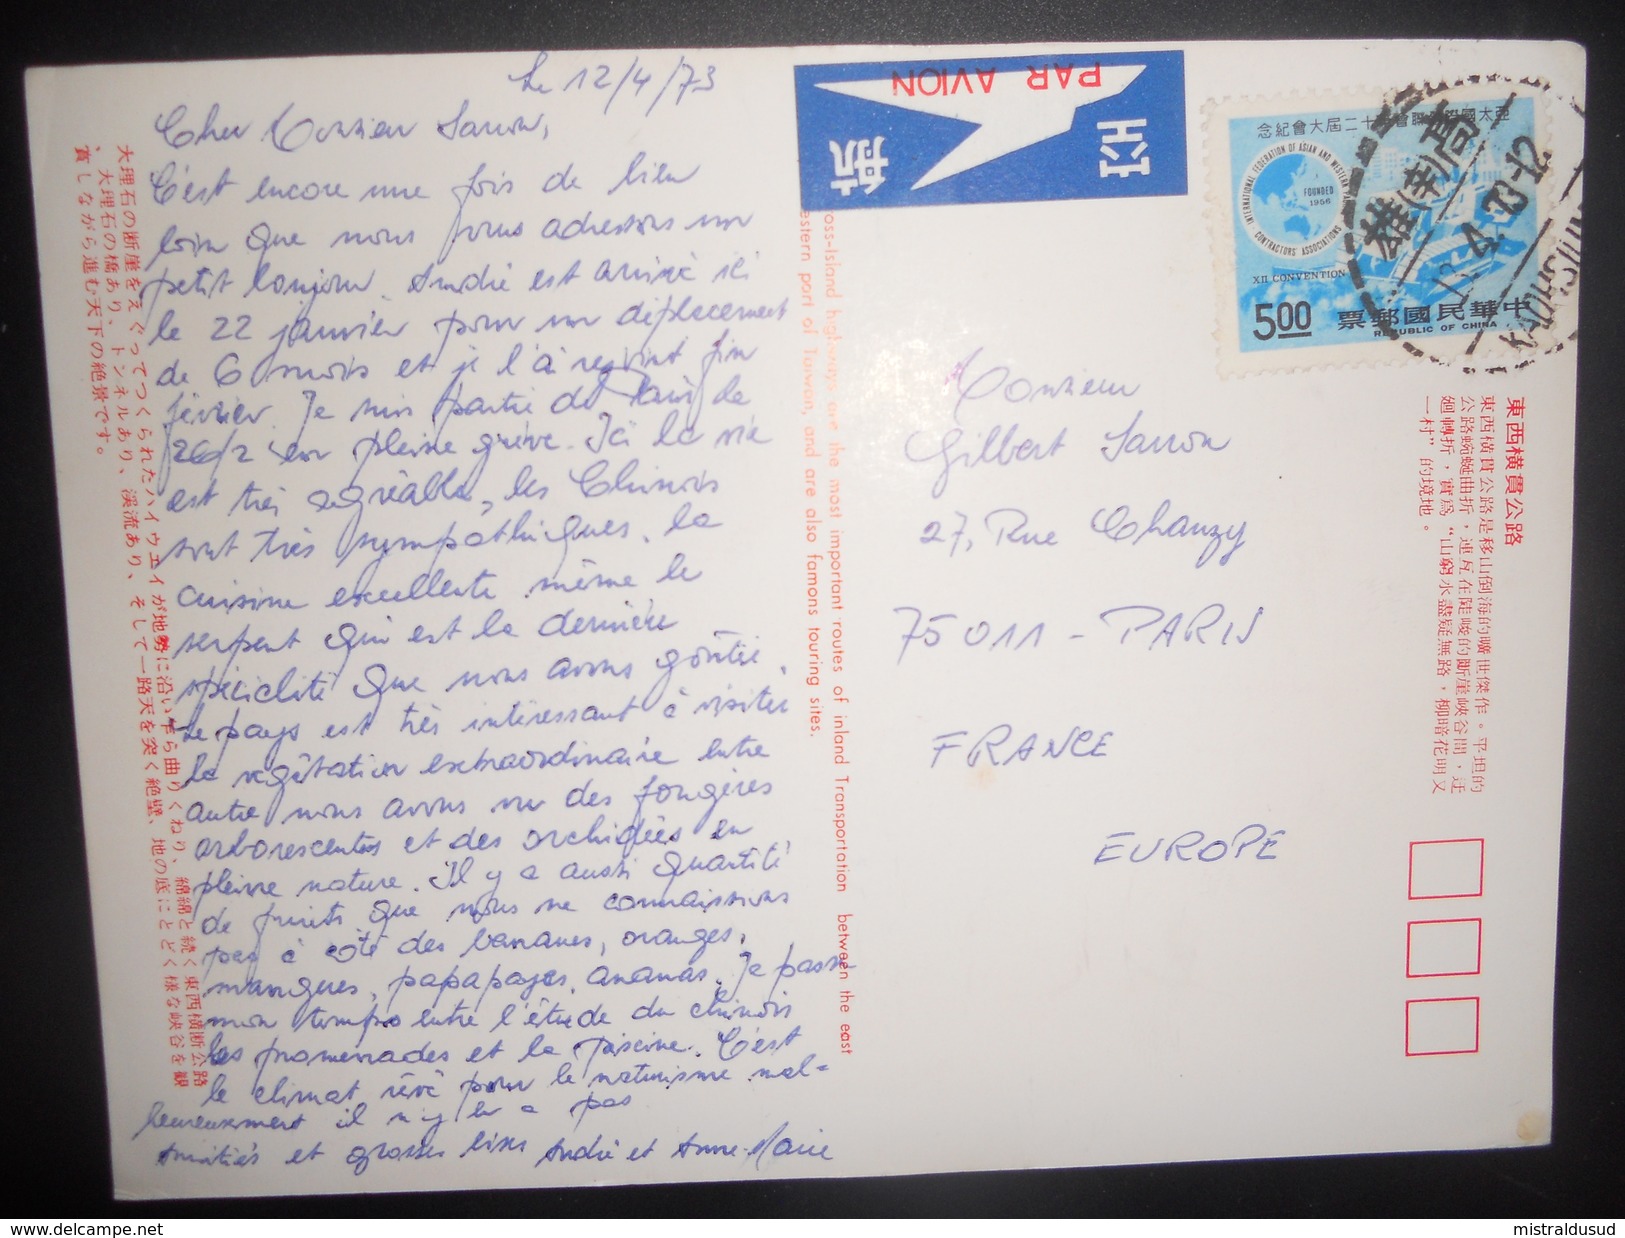 Le 12/4/73
Cher Monsieur Sarron,
C'est encore une fois de bien
loin que nous vous adressons un
petit bonjour. André est arrivé ici
le 22 janvier pour un déplacement
de 6 mois et je l'ai rejoint fin
février. Je suis partie de Paris le
26/2 en pleine grève. Ici la vie
est très agréable, les Chinois
sont très sympathiques, la
cuisine excellente même le
serpent qui est la dernière
spécialité que nous avons goûtée.
Le pays est très intéressant à visiter
la végétation extraordinaire entre
autre nous avons vu des fougères
arborescentes et des orchidées en
pleine nature. Il y a aussi quantité
de fruits que nous ne connaissions
pas à côté des bananes, oranges,
mangues, papapayes, ananas. Je passe
mon temps entre l'étude du chinois
les promenades et la piscine. C'est
le climat rêvé pour le naturisme mal=
heureusement il n'y en a pas
Amitiés et grosses bises André et Anne-Marie
大理石の断崖をえぐってつくられたハイウエイが地勢に沿い乍ら曲りくねり、綿綿と続く東西横断公路
、大理石の橋あり、トンネルあり、渓流あり、そして一路天を突く絶壁、地の底にとどく様な峡谷を観
賞しながら進む天下の絶景です。
ross-Island highways are the most important routes of inland Transportation between the east
estern part of Taiwan, and are also famous touring sites.
PAR AVION
航空
亞太國際 聯合會 十二屆大會紀念
INTERNATIONAL FEDERATION OF ASIAN AND WESTERN PA
CONTRACTORS' ASSOCIATIONS
FOUNDED
1956
XII CONVENTION
5.00
中華民國郵票
REPUBLIC OF CHINA
高雄
12.4.73-12
KAOHSIUNG
Monsieur
Gilbert Sarron
27, Rue Chanzy
75011 - PARIS
FRANCE
EUROPE
東西橫貫公路
東西橫貫公路是移山倒海的曠世傑作。平坦的
公路蜿蜒曲折，連亙在陡峻的斷崖峽谷間，迂
廻轉折，實爲“山窮水盡疑無路，柳暗花明又
一村”的境地。
www.delcampe.net
mistraldusud